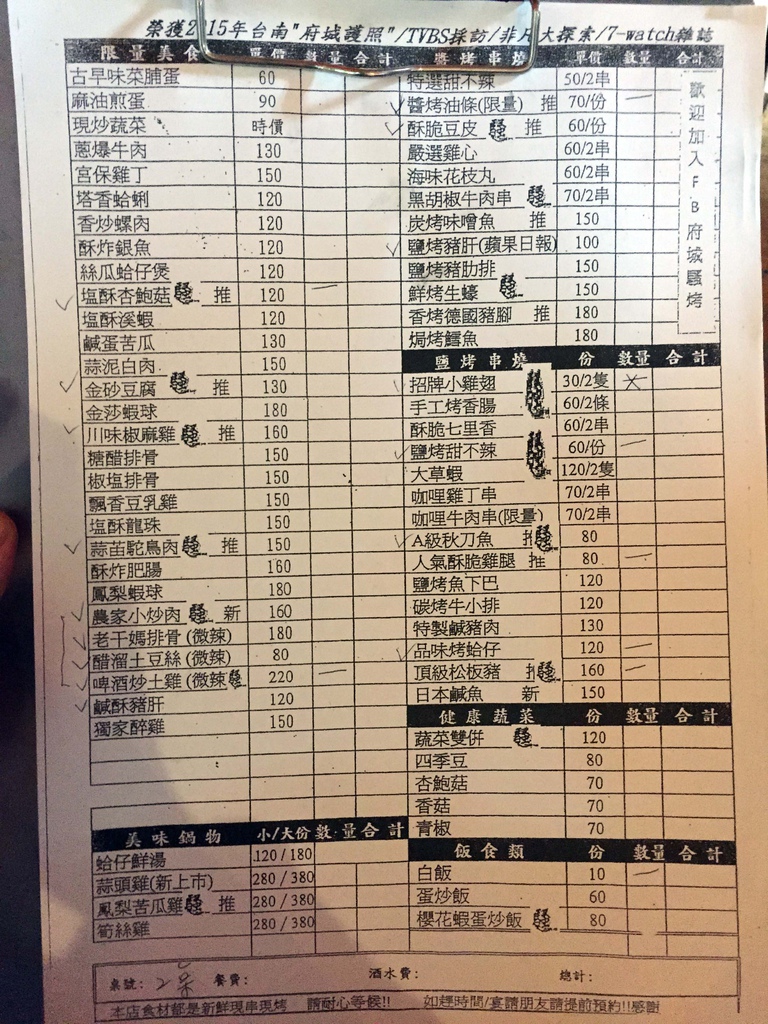 榮獲2015年台南"府城護照"/TVBS採訪/非凡大探索/7-watch雜誌
限量美食 單價 數量 合計
古早味菜脯蛋 60
麻油煎蛋 90
現炒蔬菜 時價
蔥爆牛肉 130
宮保雞丁 150
塔香蛤蜊 120
香炒螺肉 120
酥炸銀魚 120
絲瓜蛤仔煲 120
塩酥杏鮑菇 騷 推 120 一
塩酥溪蝦 120
鹹蛋苦瓜 130
蒜泥白肉 150
金砂豆腐 騷 推 130
金莎蝦球 180
川味椒麻雞 騷 推 160
糖醋排骨 150
椒塩排骨 150
飄香豆乳雞 150
塩酥龍珠 150
蒜苗鴕鳥肉 騷 推 150
酥炸肥腸 160
鳳梨蝦球 180
農家小炒肉 騷 新 160
老干媽排骨(微辣) 180
醋溜土豆絲(微辣) 80
啤酒炒土雞(微辣 騷 220 一
鹹酥豬肝 120
獨家醉雞 150
美味鍋物 小/大份 數量 合計
蛤仔鮮湯 120/180
蒜頭雞(新上市) 280/380
鳳梨苦瓜雞 騷 推 280/380
筍絲雞 280/380
醬烤串燒 單價 數量 合計
特選甜不辣 50/2串
醬烤油條(限量) 推 70/份 一
酥脆豆皮 騷 推 60/份
嚴選雞心 60/2串
海味花枝丸 60/2串
黑胡椒牛肉串 騷 70/2串
炭烤味噌魚 推 150
鹽烤豬肝(蘋果日報) 100
鹽烤豬肋排 150
鮮烤生蠔 騷 150
香烤德國豬腳 推 180
焗烤鱈魚 180
歡迎加入FB府城騷烤
鹽烤串燒 份 數量 合計
招牌小雞翅 騷 30/2隻
手工烤香腸 騷 60/2條
酥脆七里香 60/2串
鹽烤甜不辣 騷 60/份 一
大草蝦 騷 120/2隻
咖哩雞丁串 70/2串
咖哩牛肉串(限量) 70/2串
A級秋刀魚 推 騷 80
人氣酥脆雞腿 推 80 一
鹽烤魚下巴 120
碳烤牛小排 120
特製鹹豬肉 130
品味烤蛤仔 120 一
頂級松板豬 推 騷 160 一
日本鹹魚 新 150
健康蔬菜 份 數量 合計
蔬菜雙併 騷 120
四季豆 80
杏鮑菇 70
香菇 70
青椒 70
飯食類 份 數量 合計
白飯 10 一
蛋炒飯 60
櫻花蝦蛋炒飯 騷 80
桌號: 餐費: 酒水費: 總計:
本店食材都是新鮮現串現烤 請耐心等候!! 如趕時間/宴請朋友請提前預約!!感謝